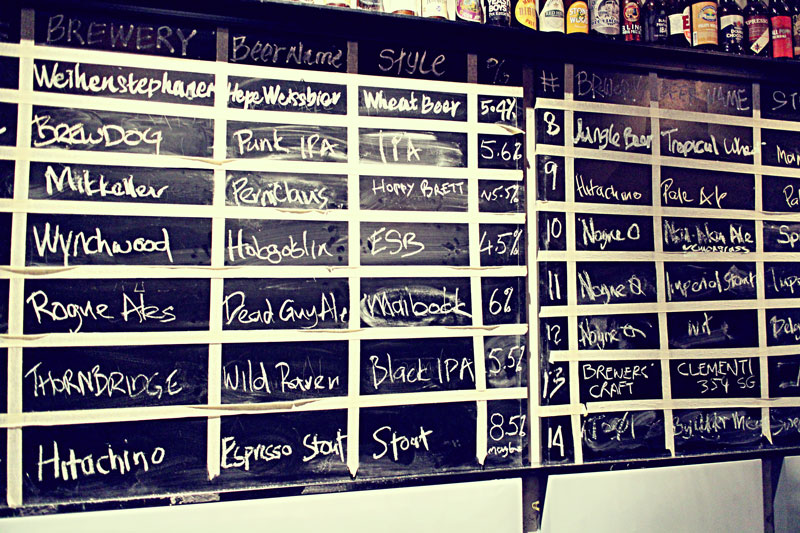 BREWERY BeerName STYLE %
Weihenstephaner HepeWeissbier Wheat Beer 5.4%
BREWDOG Punk IPA IPA 5.6%
Mikkeller HOPPY BRETT ~5.5%
Wychwood Hobgoblin ESB 4.5%
Rogue Ales Dead Guy Ale Maibock 6%
THORNBRIDGE Wild Raven Black IPA 5.5%
Hitachino Espresso Stout Stout 8.5%
maybe
# BREWERY BEER NAME
8 Jungle Beer Tropical Wheat
9 Hitachino Pale Ale
10 Nøgne Ø Ale
LEMONGRASS
11 Nøgne Ø Imperial Stout
12 Nøgne Ø
13 BREWERS' CRAFT CLEMENTI 354 SG
14